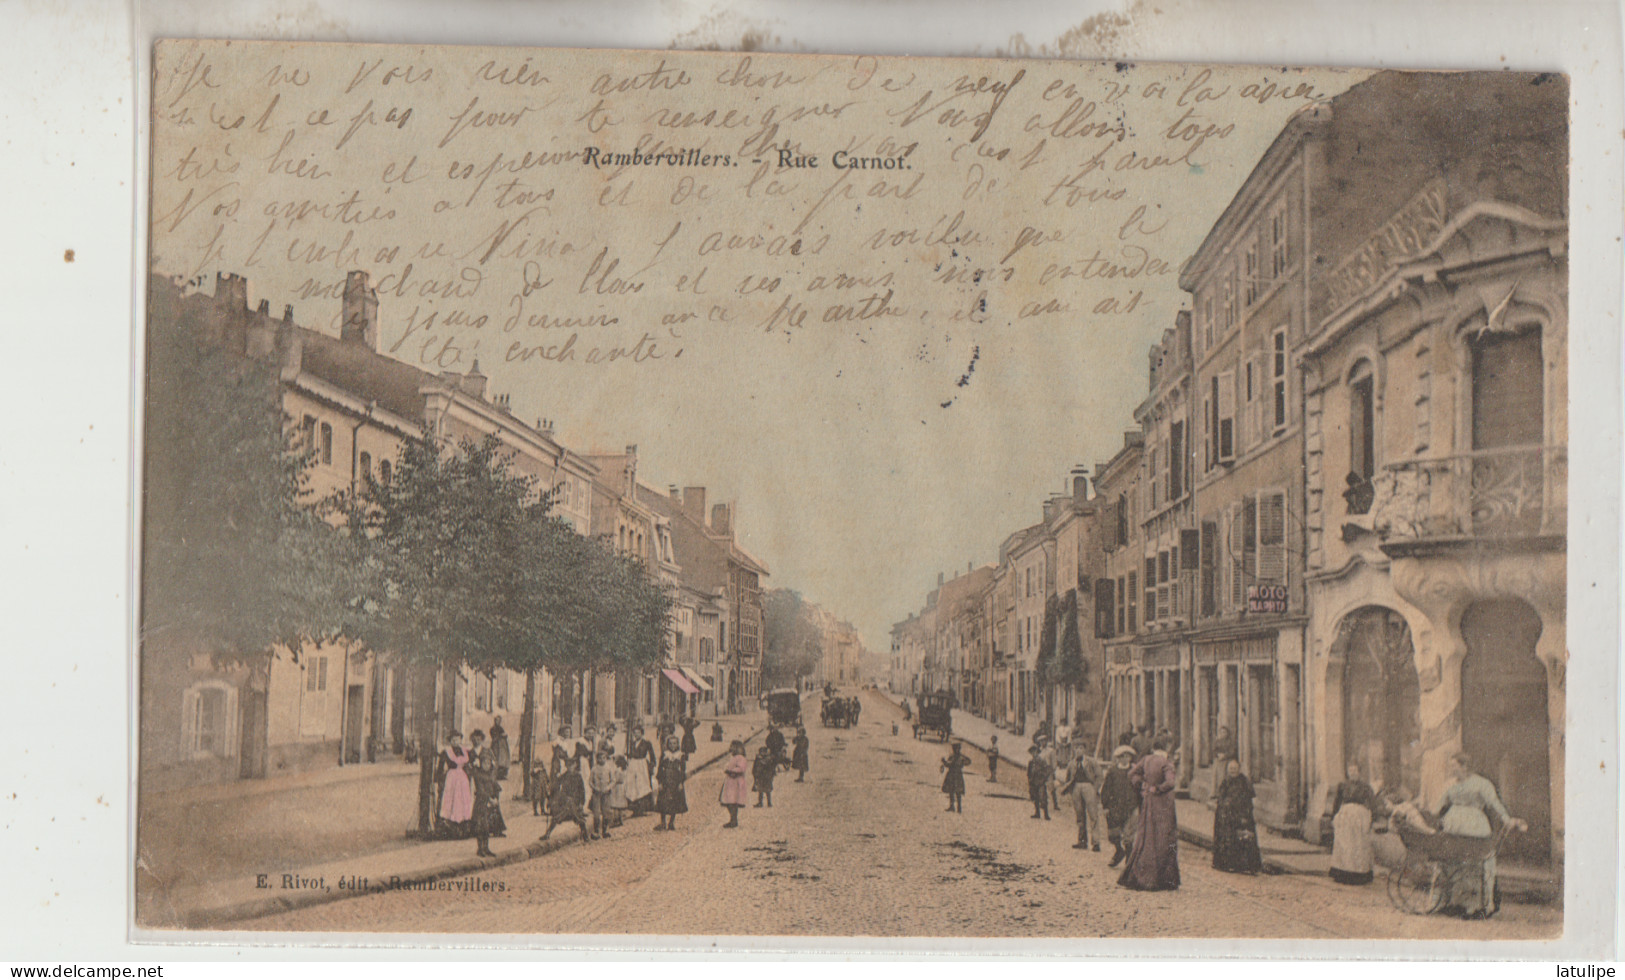 Je ne vois rien autre chose de neuf en voila assez
n'est ce pas pour te renseigner Nous allons tous
très bien et esperons que chez vous c'est pareil
Rambervillers. - Rue Carnot.
Nos amitiés a tous et de la part de tous
Je t'embrasse Nina J'aurais voulu que le
marchand de et ses amis nous entendent
ces jours derniers avec Marthe, il aurait
été enchanté.
MOTO
NAPHTA
E. Rivot, édit., Rambervillers.
latulipe